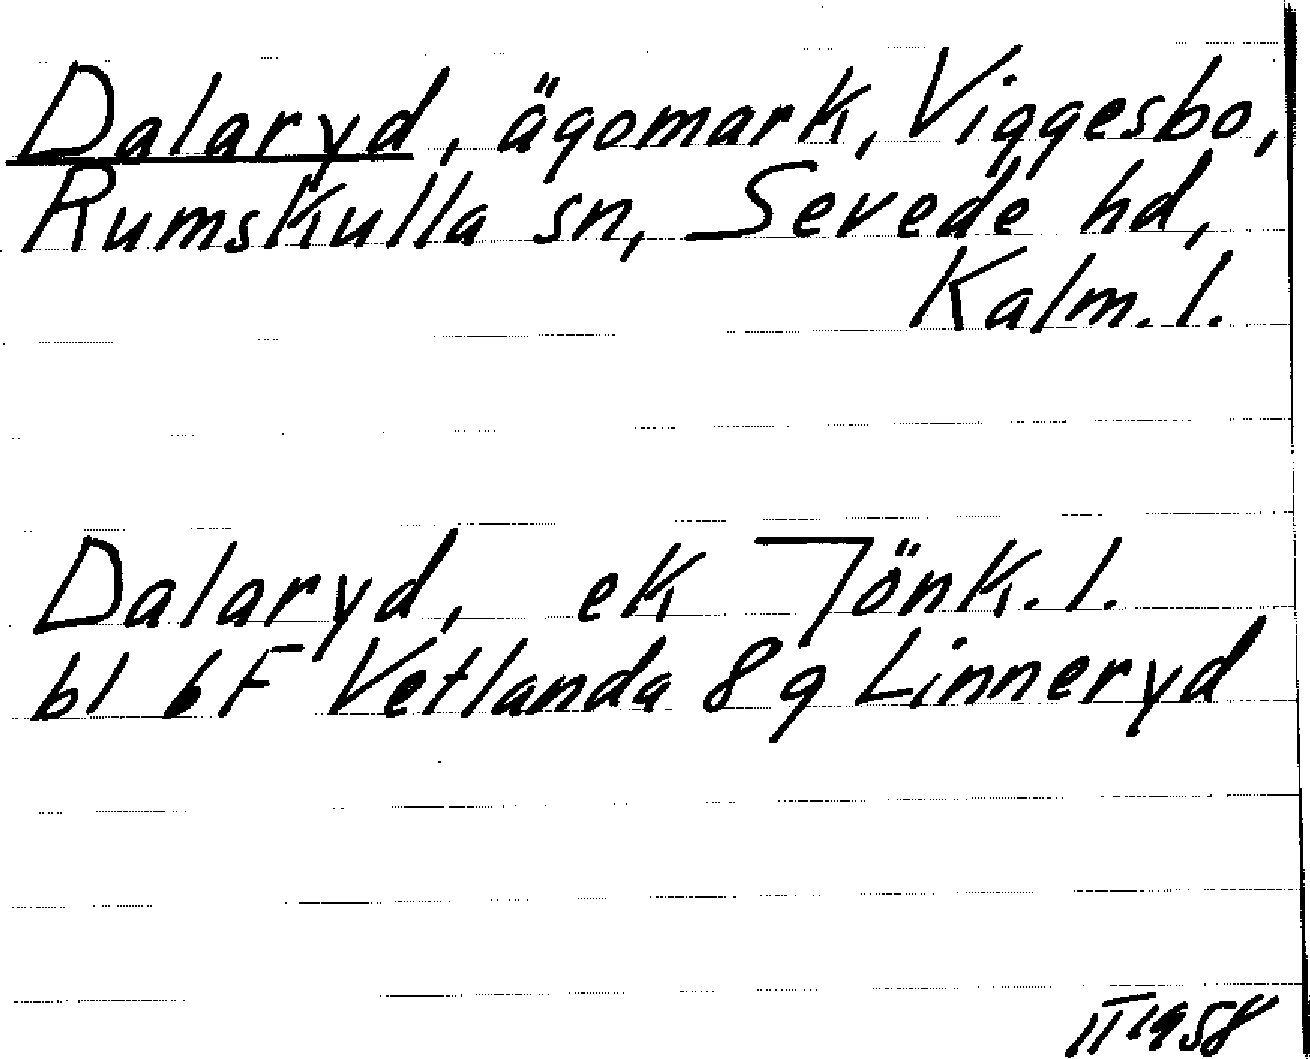 Dalaryd, ägomark, Viggesbo,
Rumskulla sn, Sevede hd,
Kalm. l.
Dalaryd, ek Jönk. l.
bl 6F Vetlanda 8g Linneryd
II 1958